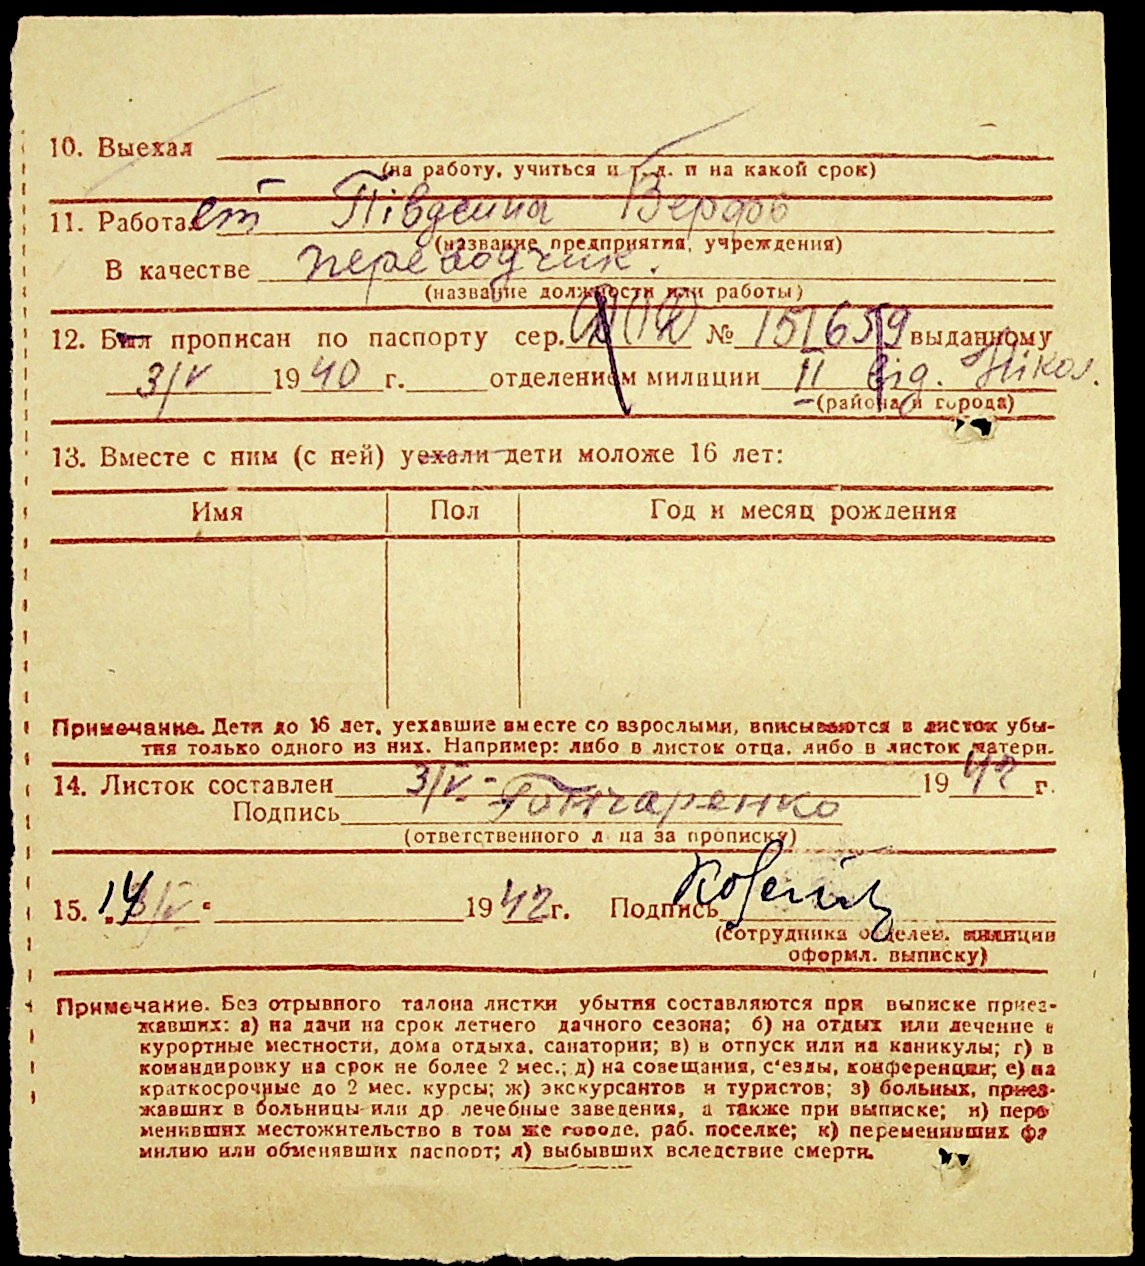 10. Выехал
(на работу, учиться и т. д. и на какой срок)
11. Работает Південна Верфь
(название предприятия, учреждения)
В качестве переводчик.
(название должности или работы)
12. Был прописан по паспорту сер. № 151659 выданному
3/V 1940 г. отделением милиции II від. Нікол.
(района и города)
13. Вместе с ним (с ней) уехали дети моложе 16 лет:
Имя Пол Год и месяц рождения
Примечание. Дети до 16 лет, уехавшие вместе со взрослыми, вписываются в листок убы-
тия только одного из них. Например: либо в листок отца, либо в листок матери.
14. Листок составлен 3/V- 1942 г.
Подпись Гончаренко
(ответственного лица за прописку)
15. 14 1942 г. Подпись
(сотрудника отделен. милиции
оформл. выписку)
Примечание. Без отрывного талона листки убытия составляются при выписке приез-
жавших: а) на дачи на срок летнего дачного сезона; б) на отдых или лечение в
курортные местности, дома отдыха, санатории; в) в отпуск или на каникулы; г) в
командировку на срок не более 2 мес.; д) на совещания, с'езды, конференции; е) на
краткосрочные до 2 мес. курсы; ж) экскурсантов и туристов; з) больных, приез-
жавших в больницы или др лечебные заведения, а также при выписке; и) пере
менивших местожительство в том же городе, раб. поселке; к) переменивших фа
милию или обменявших паспорт; л) выбывших вследствие смерти.